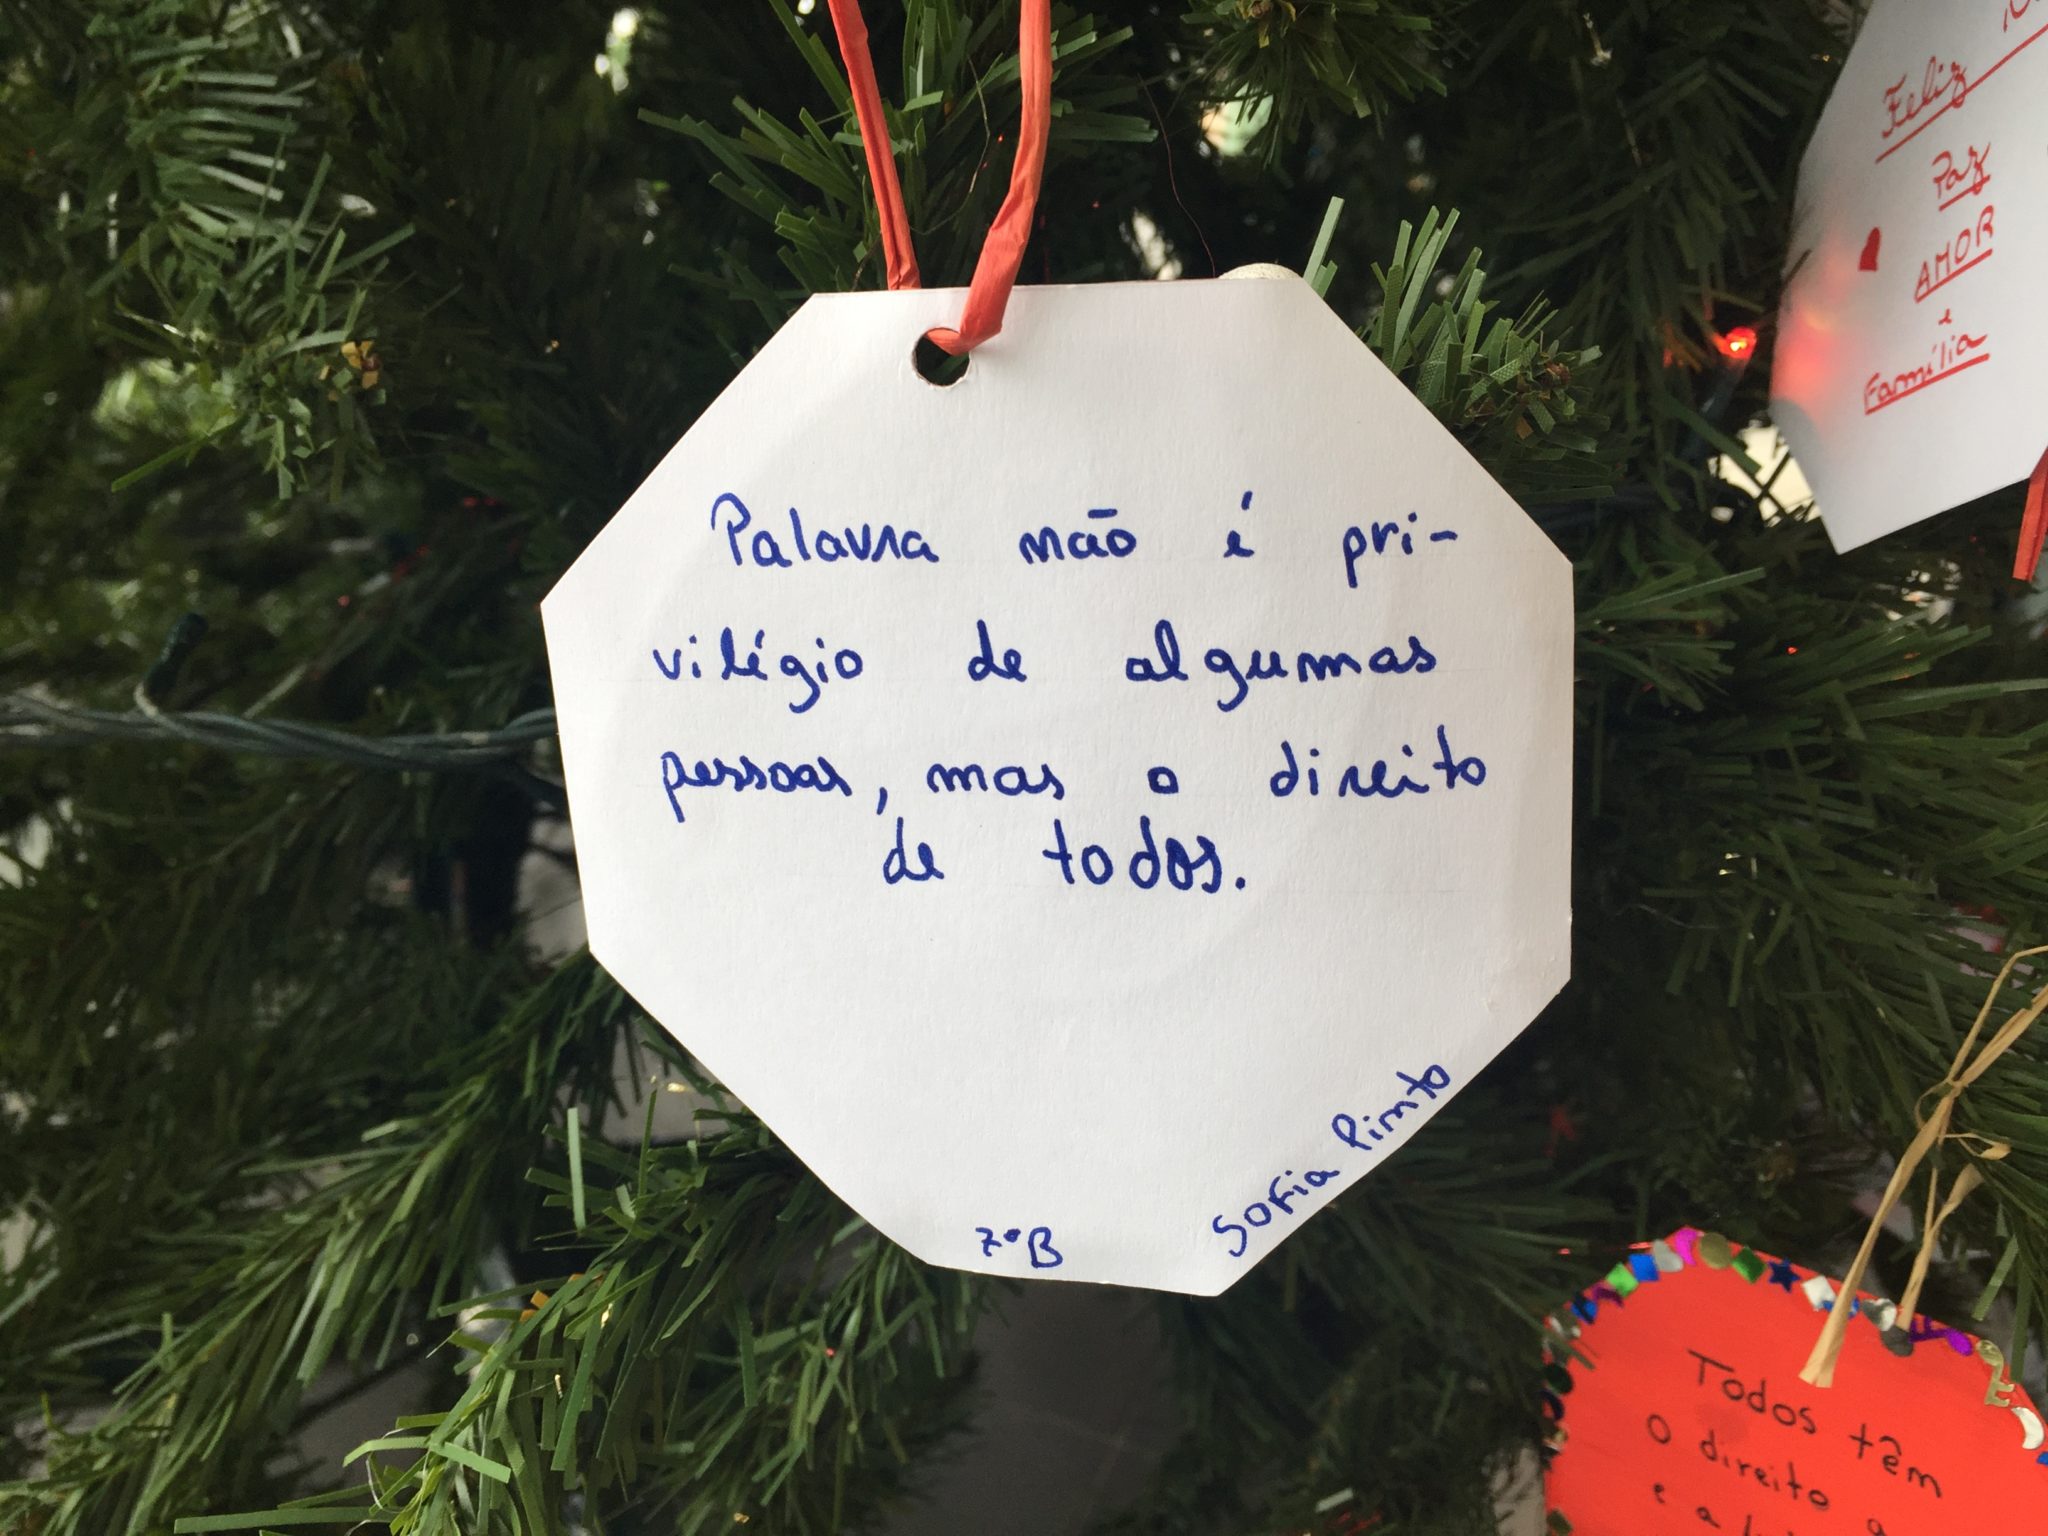 Palavra não é pri-
vilégio de algumas
pessoas, mas o direito
de todos.
7º B
Sofia Pinto
Feliz
Paz
AMOR
e
Família
Todos têm
o direito
e a